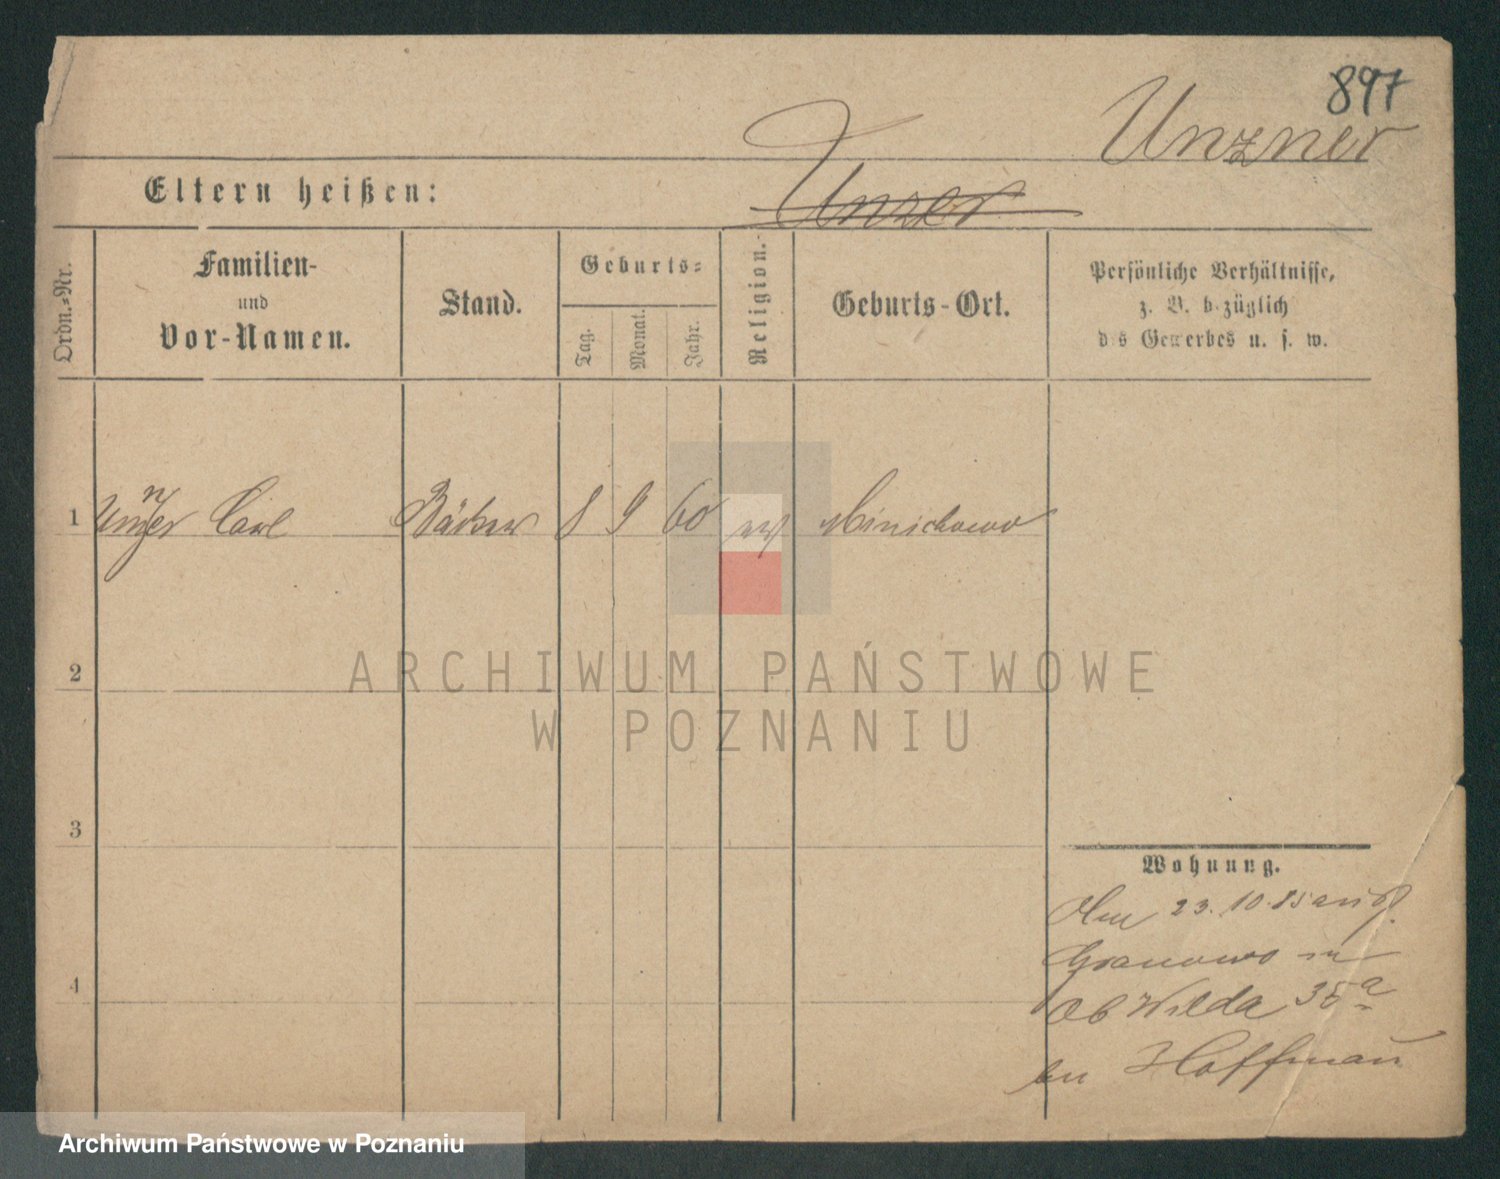 897
Unzner
Eltern heißen:
Unzer
Ordn.-Nr.
Familien-
und
Vor-Namen.
Stand.
Geburts-
Tag.
Monat.
Jahr.
Religion.
Geburts-Ort.
Persönliche Verhältnisse,
z. B. bezüglich
des Gewerbes u. s. w.
1 Unzner Carl Bäcker 8 9 60 ev Minichowo
2
ARCHIWUM PAŃSTWOWE
W POZNANIU
3
Wohnung.
Am 23. 10. 85 aus
Granowo in
Ob Wilda 35a
bei Hoffmann
4
Archiwum Państwowe w Poznaniu